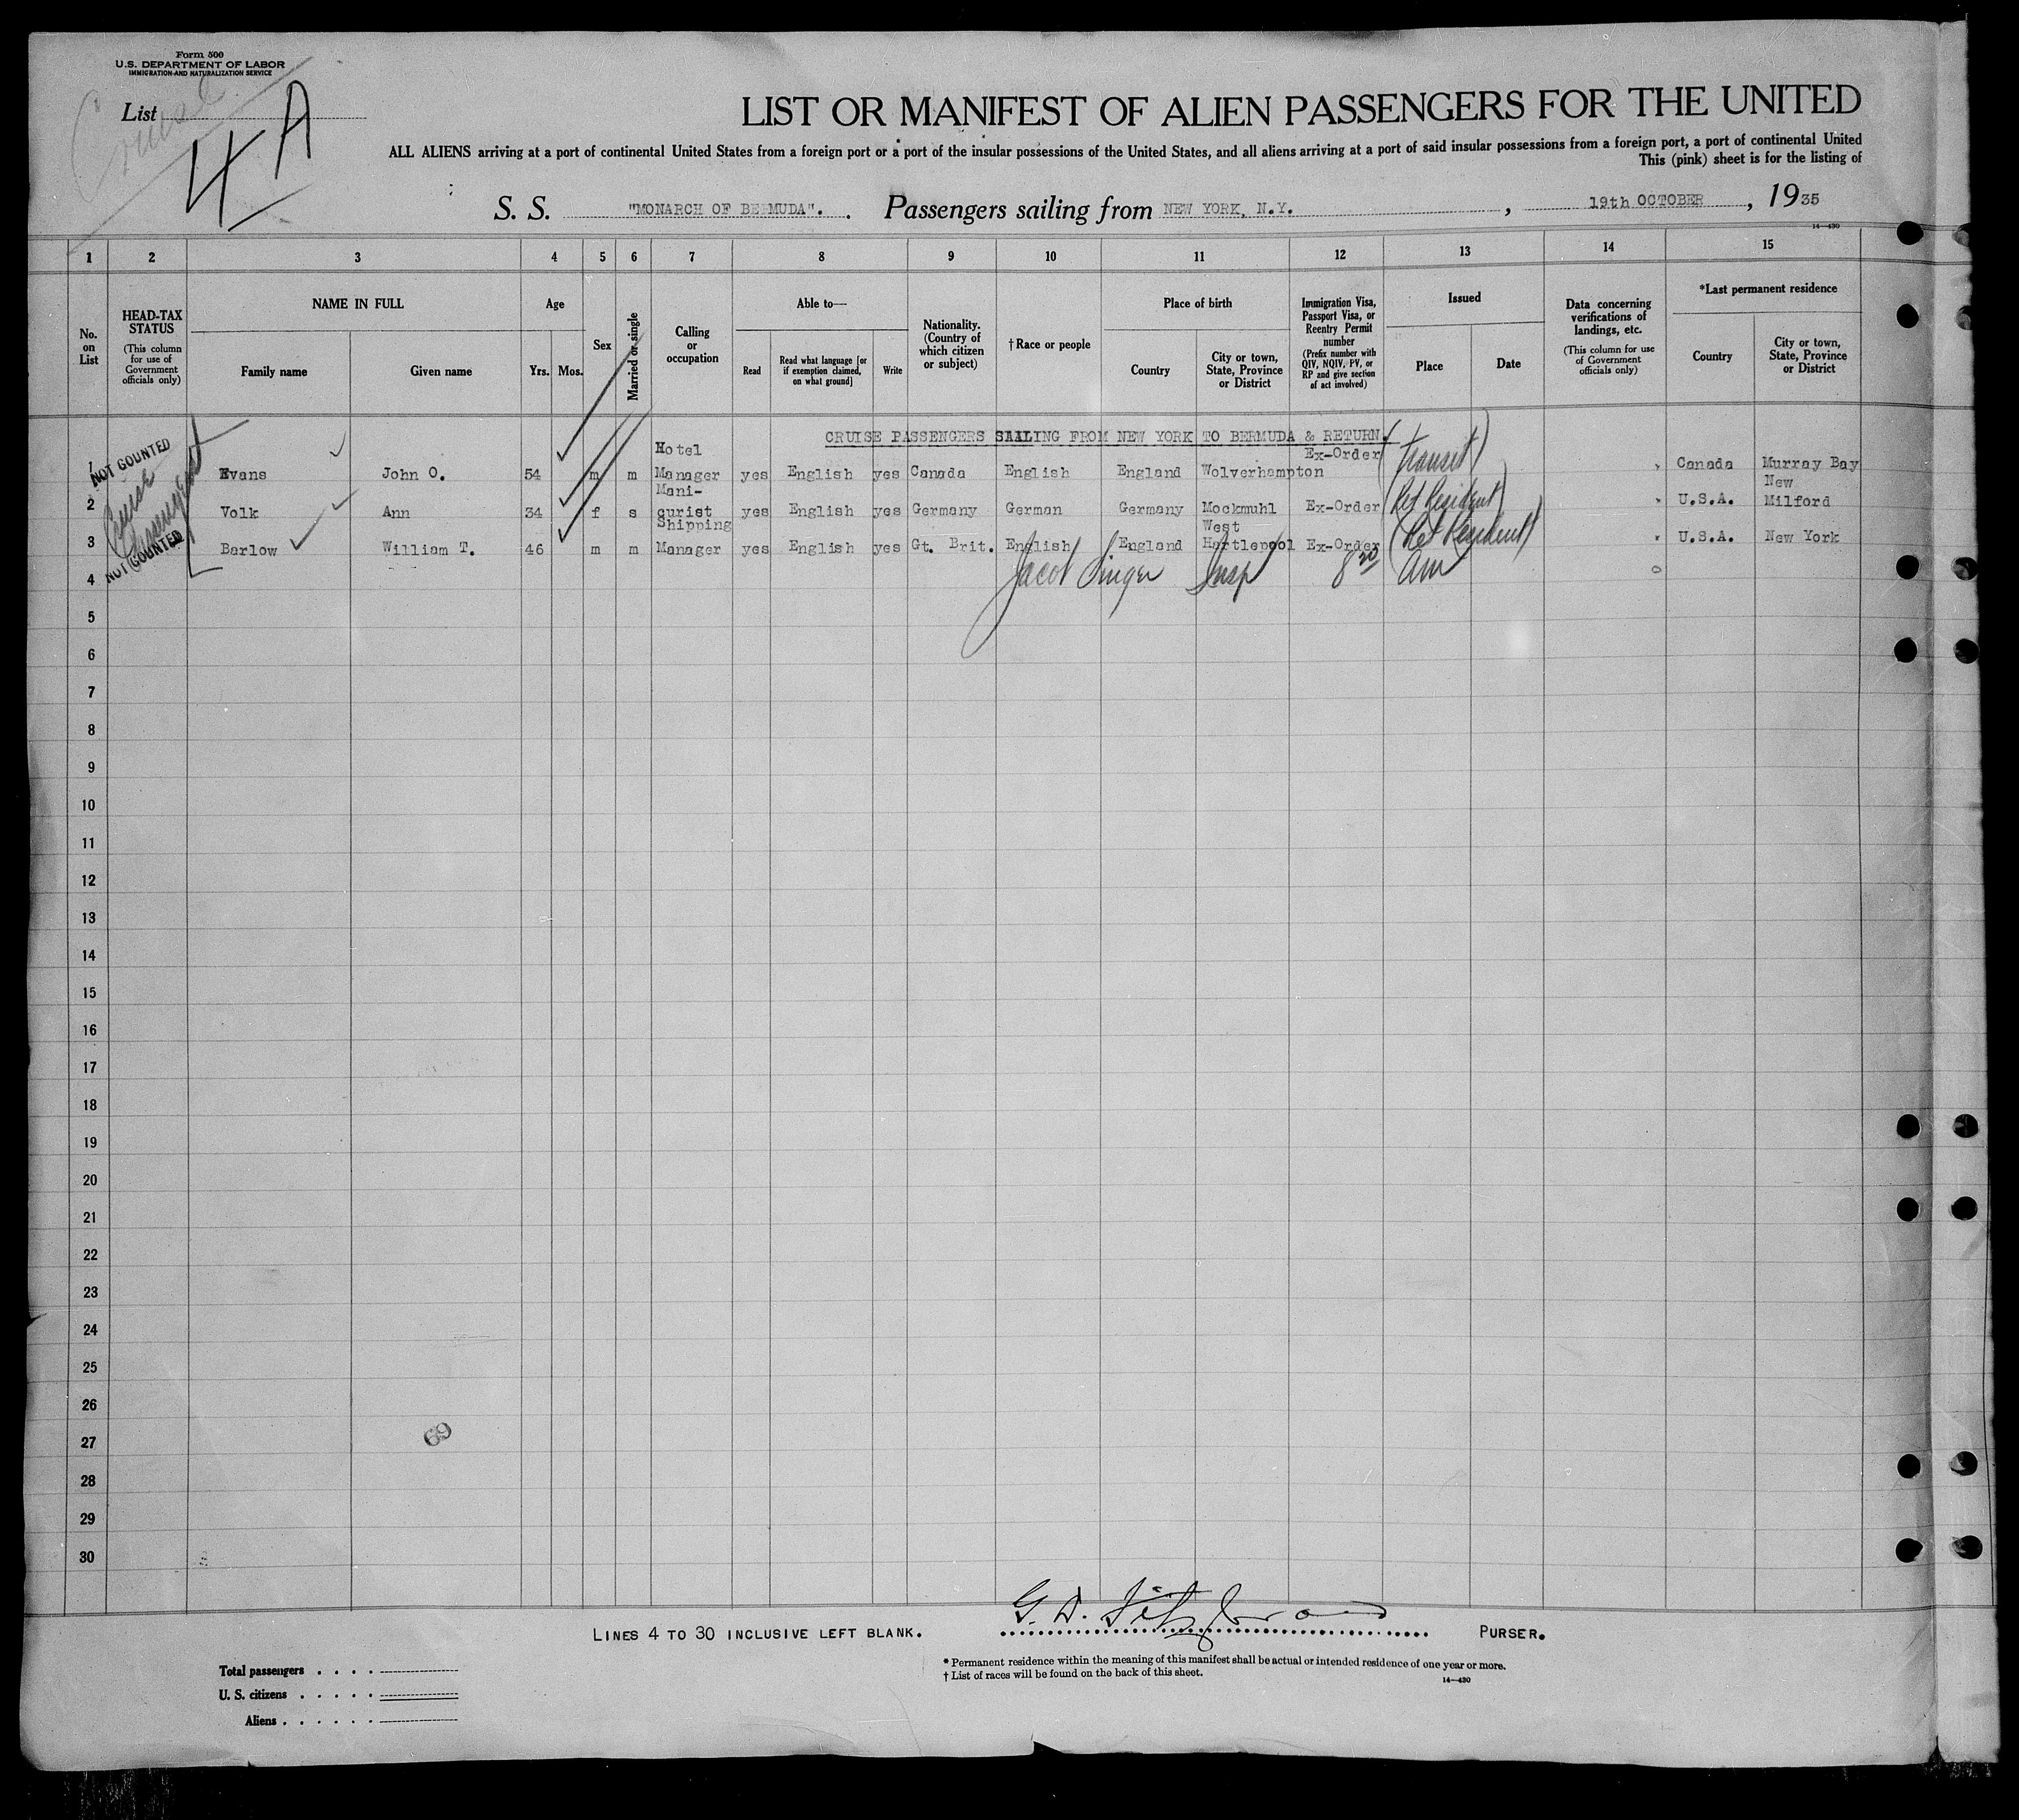 Form 500
U.S. DEPARTMENT OF LABOR
IMMIGRATION AND NATURALIZATION SERVICE
List
4 A
LIST OR MANIFEST OF ALIEN PASSENGERS FOR THE UNITED
ALL ALIENS arriving at a port of continental United States from a foreign port or a port of the insular possessions of the United States, and all aliens arriving at a port of said insular possessions from a foreign port, a port of continental United
This (pink) sheet is for the listing of
S. S. "MONARCH OF BERMUDA". Passengers sailing from NEW YORK, N.Y. , 19th OCTOBER , 1935
14—430
1 2 3 4 5 6 7 8 9 10 11 12 13 14 15
No. on List
HEAD-TAX STATUS (This column for use of Government officials only)
NAME IN FULL
Family name Given name
Age
Yrs. Mos.
Sex
Married or single
Calling or occupation
Able to—
Read Read what language [or if exemption claimed, on what ground] Write
Nationality. (Country of which citizen or subject)
† Race or people
Place of birth
Country City or town, State, Province or District
Immigration Visa, Passport Visa, or Reentry Permit number (Prefix number with QIV, NQIV, PV, or RP and give section of act involved)
Issued
Place Date
Data concerning verifications of landings, etc. (This column for use of Government officials only)
*Last permanent residence
Country City or town, State, Province or District
CRUISE PASSENGERS SAILING FROM NEW YORK TO BERMUDA & RETURN.
NOT COUNTED
Cruise Passengers
NOT COUNTED
1 Evans John O. 54 m m Hotel Manager yes English yes Canada English England Wolverhampton Ex-Order (Transit) Canada Murray Bay
2 Volk Ann 34 f s Mani- curist yes English yes Germany German Germany Mockmuhl Ex-Order (Ret Resident) U.S.A. New Milford
3 Barlow William T. 46 m m Shipping Manager yes English yes Gt. Brit. English England West Hartlepool Ex-Order (Ret Resident) U.S.A. New York
4 Jacob Singer Insp 8 20 am
5
6
7
8
9
10
11
12
13
14
15
16
17
18
19
20
21
22
23
24
25
26
27
28
29
30
69
LINES 4 TO 30 INCLUSIVE LEFT BLANK. G. D. Fitzgerald PURSER.
* Permanent residence within the meaning of this manifest shall be actual or intended residence of one year or more.
† List of races will be found on the back of this sheet.
14—430
Total passengers
U. S. citizens
Aliens